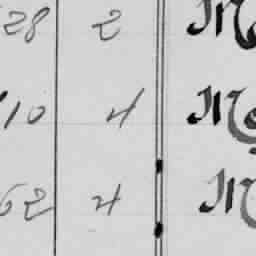 28 2 M
10 4 Mc
62 4 M